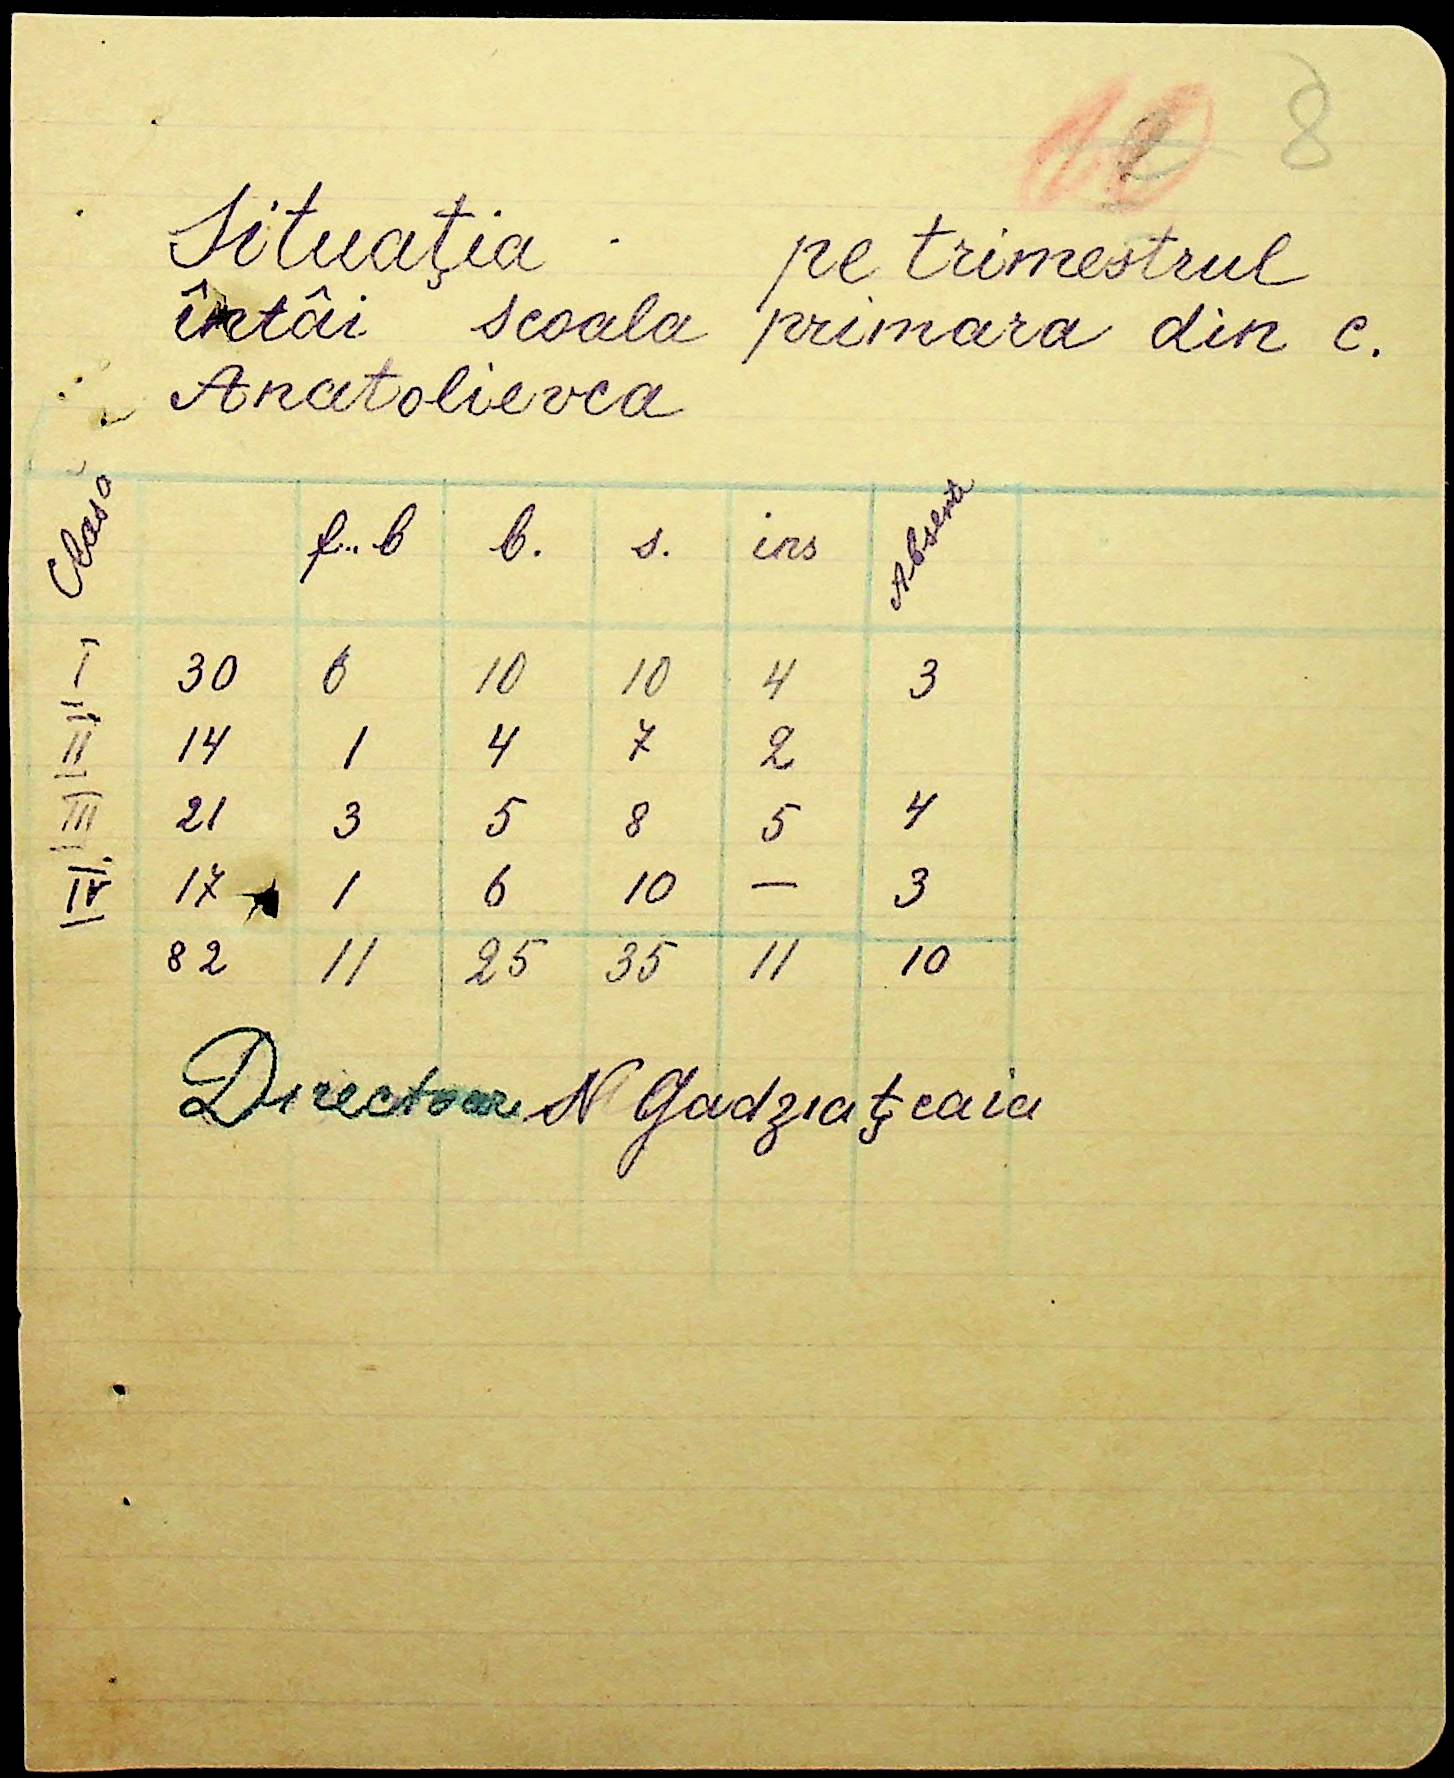 8
Situaţia pe trimestrul
întâi scoala primara din c.
Anatolievca
Clasă f.. b b. s. ins Absente
I 30 6 10 10 4 3
II 14 1 4 7 2
III 21 3 5 8 5 4
IV 17 1 6 10 — 3
82 11 25 35 11 10
Directoare N Gadziaţcaia